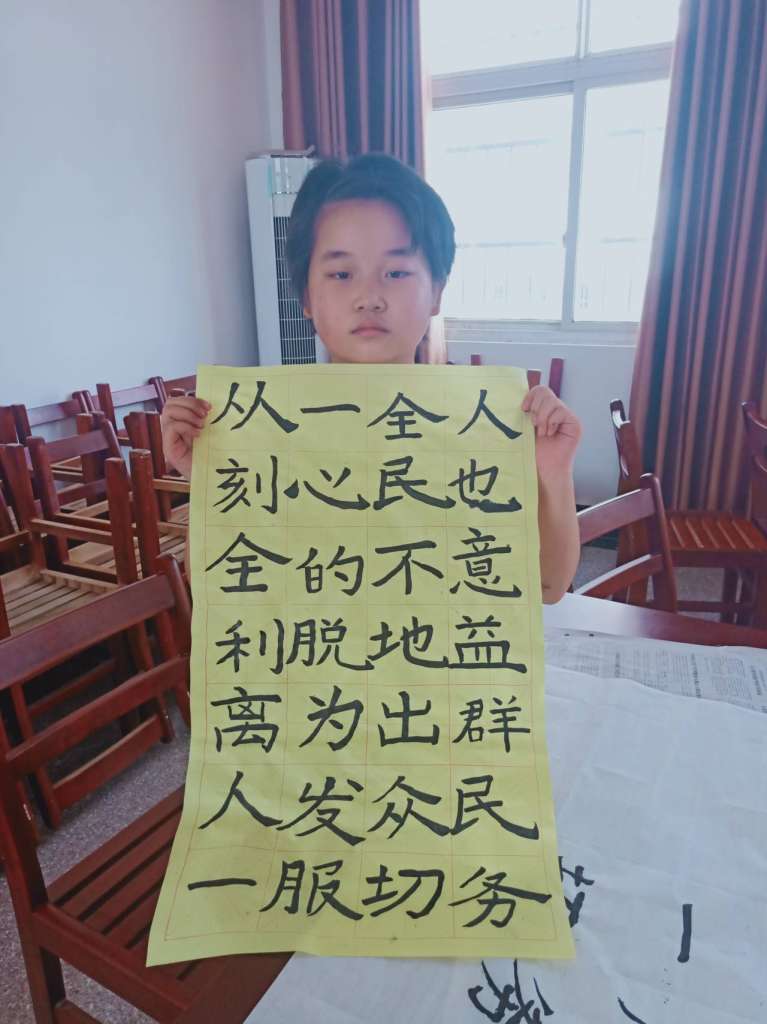 从一全人
刻心民也
全的不意
利脱地益
离为出群
人发众民
一服切务